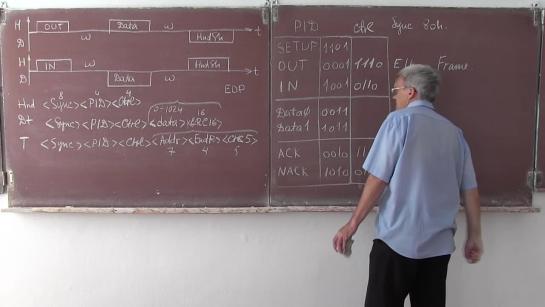 H OUT Data w
D w HndSh t
H IN w HndSh t
D Data
EOP
8 4 4
Hnd <Sync><PID><Ctrl> 0-1024 16
Dt <Sync><PID><Ctrl><data><CRC16>
T <Sync><PID><Ctrl><Addr><EndP><CRC5>
7 4 5
PID Ctrl Sync
SETUP 1101
OUT 0001 1110 Frame
IN 1001 0110
Data0 0011
Data1 1011
ACK 0010
NACK 1010